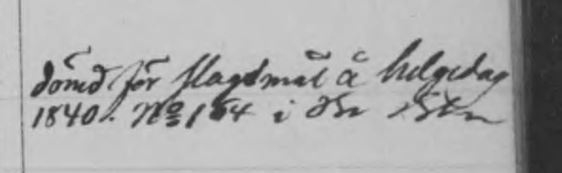 dömd för slagsmål å helgedag
1840. No 164 i